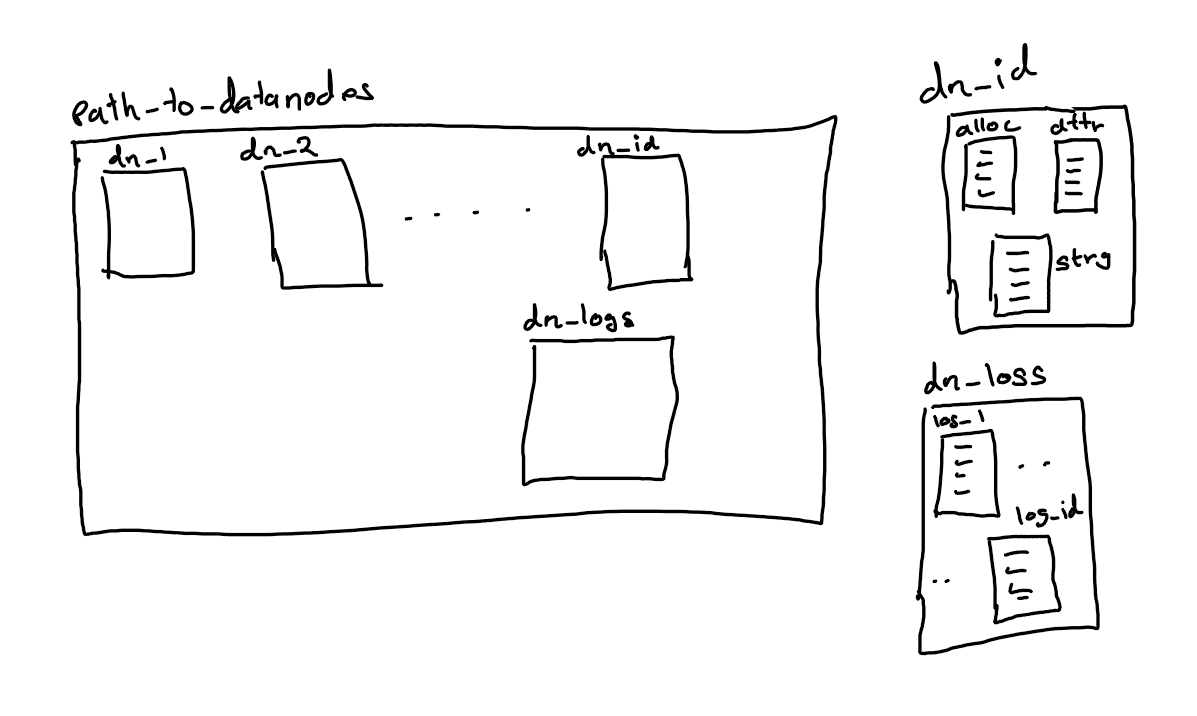 path_to_datanodes
dn_1
dn_2
dn_id
dn_logs
dn_id
alloc
attr
strg
dn_logs
log_1
log_id